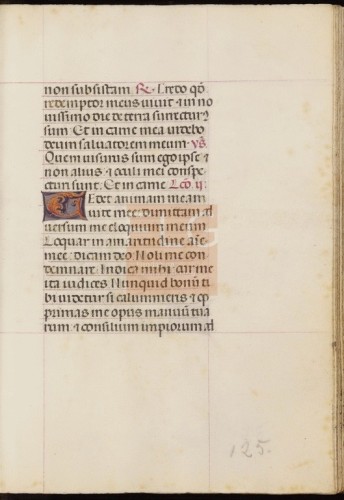 non subsistam. R. Credo qd
redemptor meus vivit & in no
vissimo die de terra surrectur9
sum. Et in carne mea videbo
deum salvatorem meum. vs.
Quem visurus sum ego ipse &
non alius & oculi mei conspe
cturi sunt. Et in carne Lco. ii.
Tedet animam meam
vite mee: dimittam ad
versum me eloquium meum
Loquar in amaritudine aīe
mee: dicam deo Noli me con
demnare. Indica mihi: cur me
ita iudices Nunquid bonū ti
bi videtur si calumnieris & op
primas me opus manuū tua
rum & consilium impiorum ad
125.